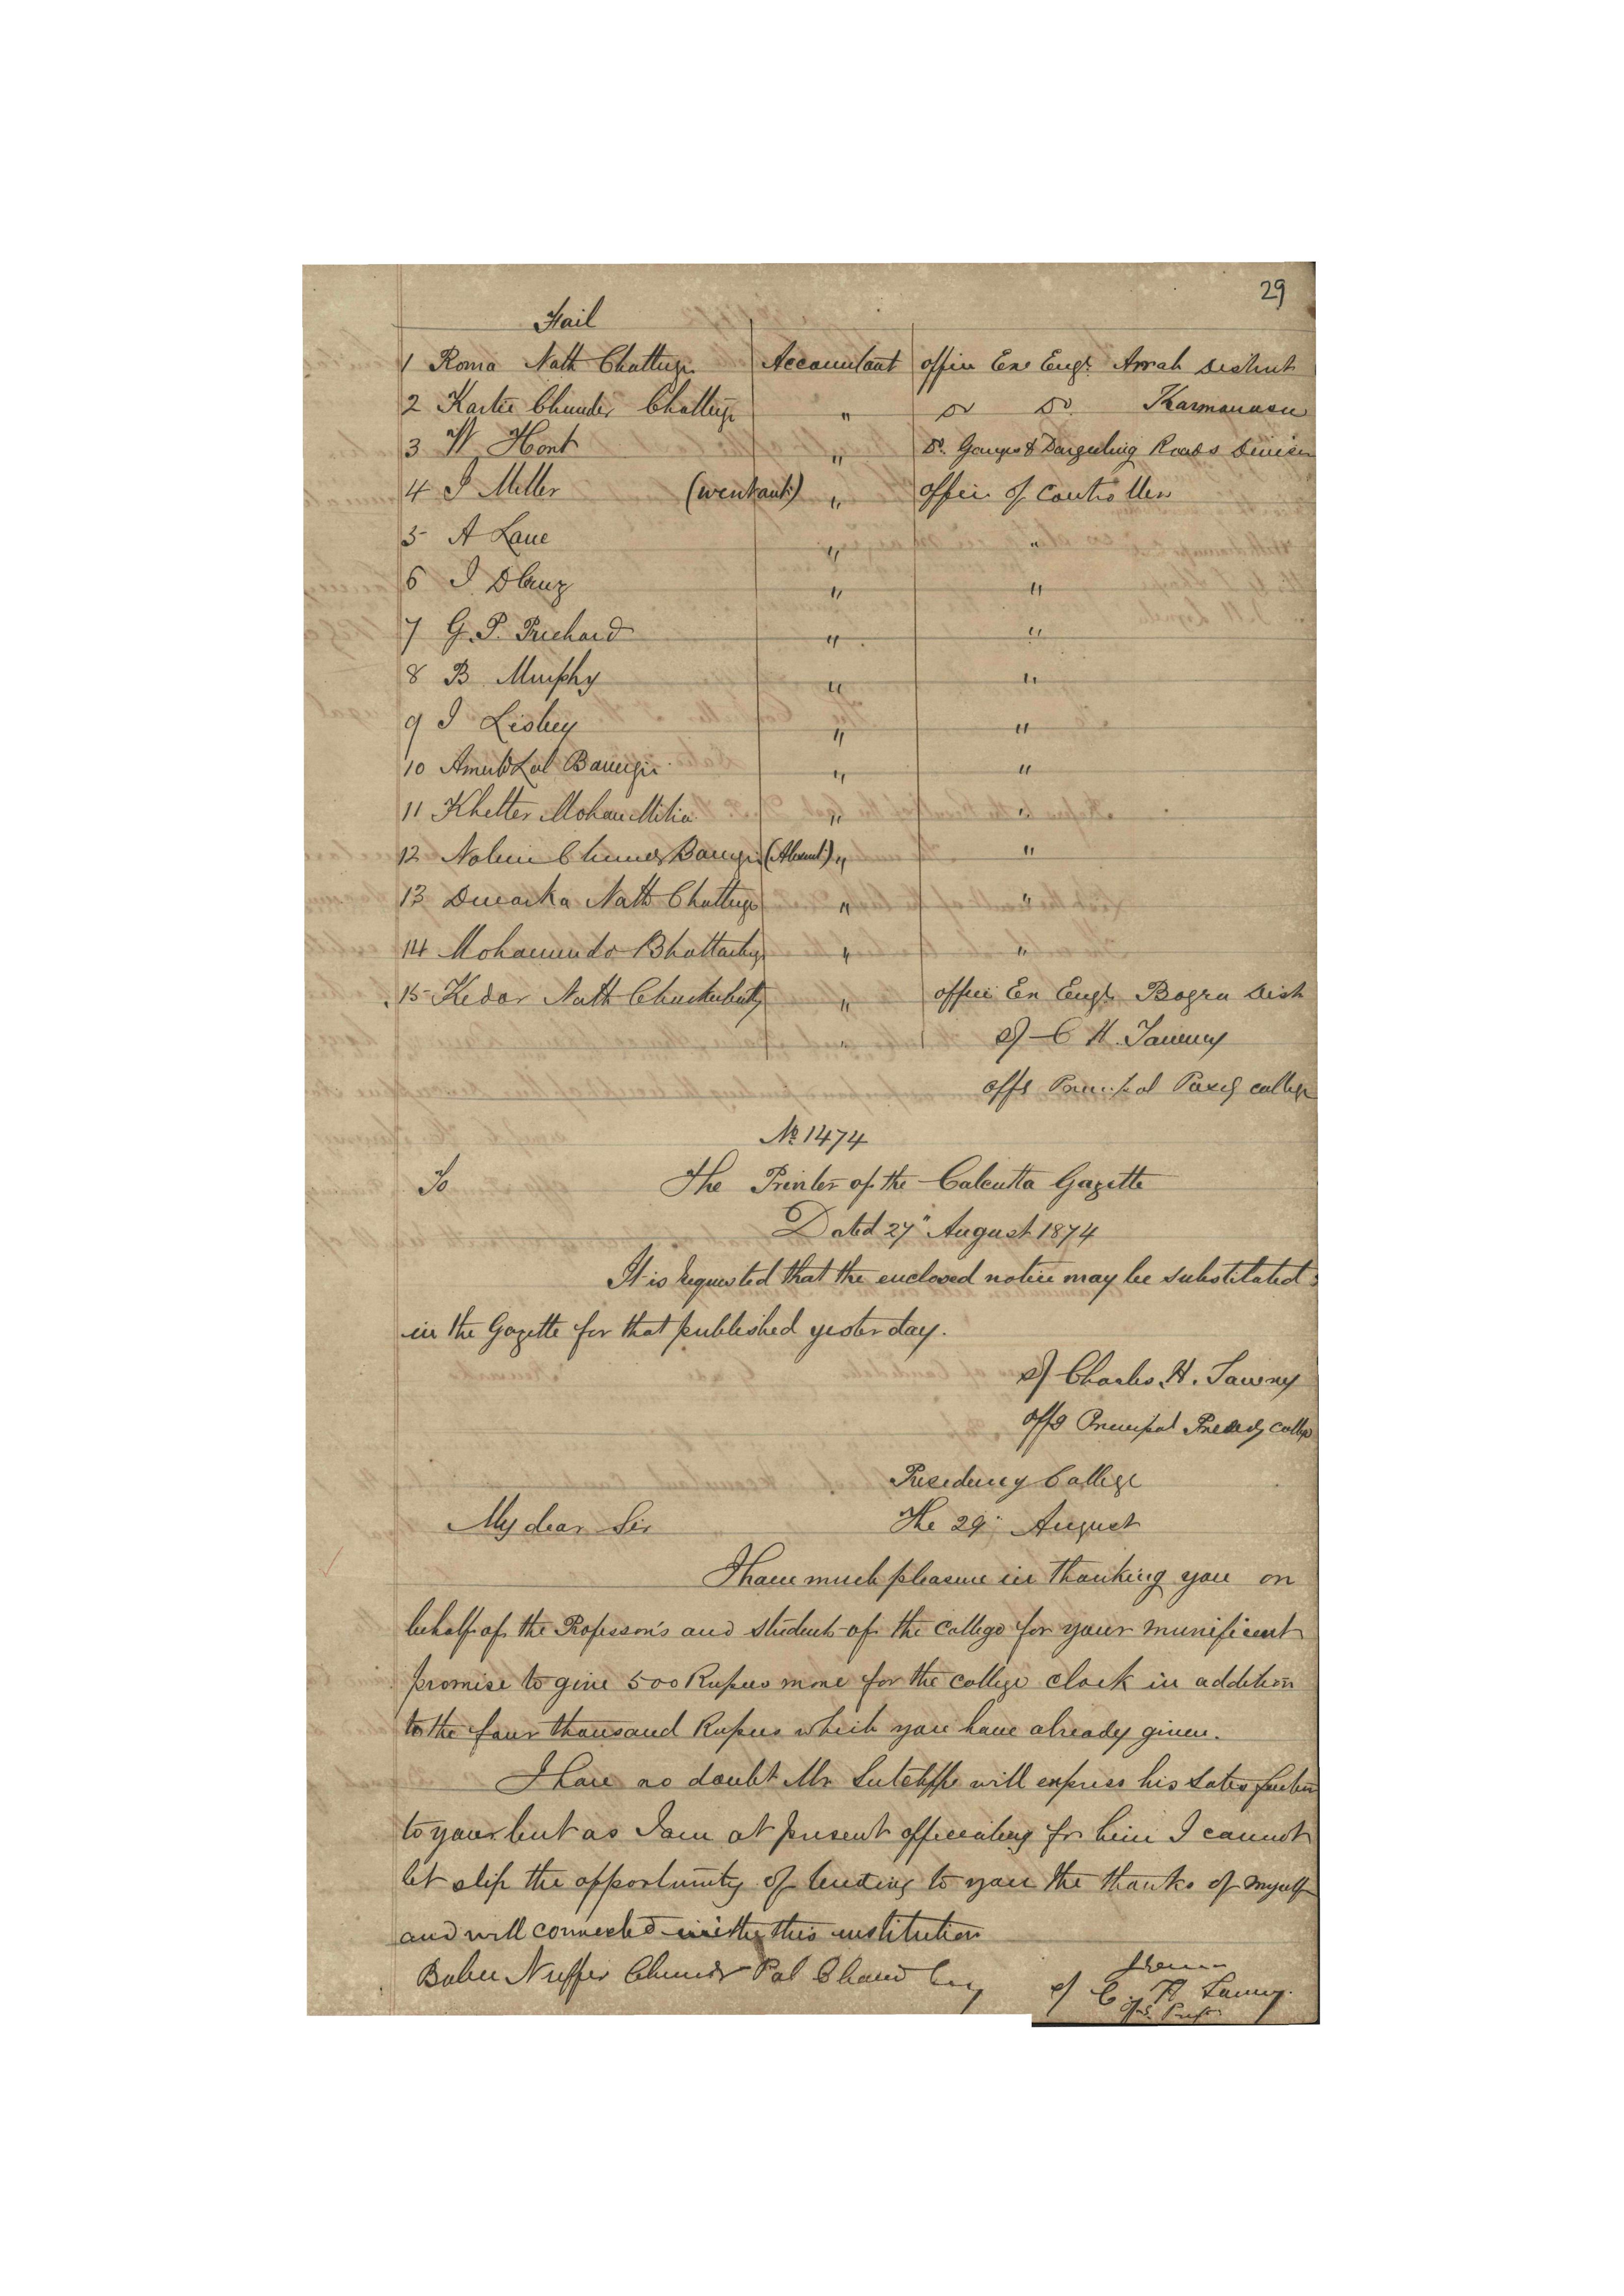 29
Fail
1 Roma Nath Chatterji Accountant office Exe Engr. Arrah District
2 Kartic Chunder Chatterji " Do Do Karmanasa
3 W Hont " Do. Ganges & Dargeeling Roads Division
4 J Miller (went out) " office of Controller
5 A Lane " "
6 J. DCruz " "
7 G. P. Prichard " "
8 B. Murphy " "
9 J Lisbey " "
10 Amrit Lal Banerjii " "
11 Khetter Mohan Mitra " "
12 Nobin Chunder Banerji (Absent) " "
13 Dwarka Nath Chatterji " "
14 Bhattachji " "
15 Kedar Nath Chuckerbutty " office Ex Engr. Bogra Dist
" s/ C H. Tawney
offg Principal Presy college
No 1474
To The Printer of the Calcutta Gazette
Dated 27" August 1874
It is requested that the enclosed notice may be substituted
in the Gazette for that published yesterday.
s/ Charles H. Tawney
offg Principal Presdy College
Presidency College
My dear Sir The 29" August
I have much pleasure in thanking you on
behalf of the Professors and students of the College for your munificent
promise to give 500 Rupees more for the college clock in addition
to the four thousand Rupees which you have already given.
I have no doubt Mr Sutcliffe will express his satisfaction
to you but as I am at present officiating for him I cannot
let slip the opportunity of tending to you the thanks of myself
and will connected with this institution
Babu Nuffer Chunder Pal Chowdhry s/ C. H Tawney.
Offg. Prin